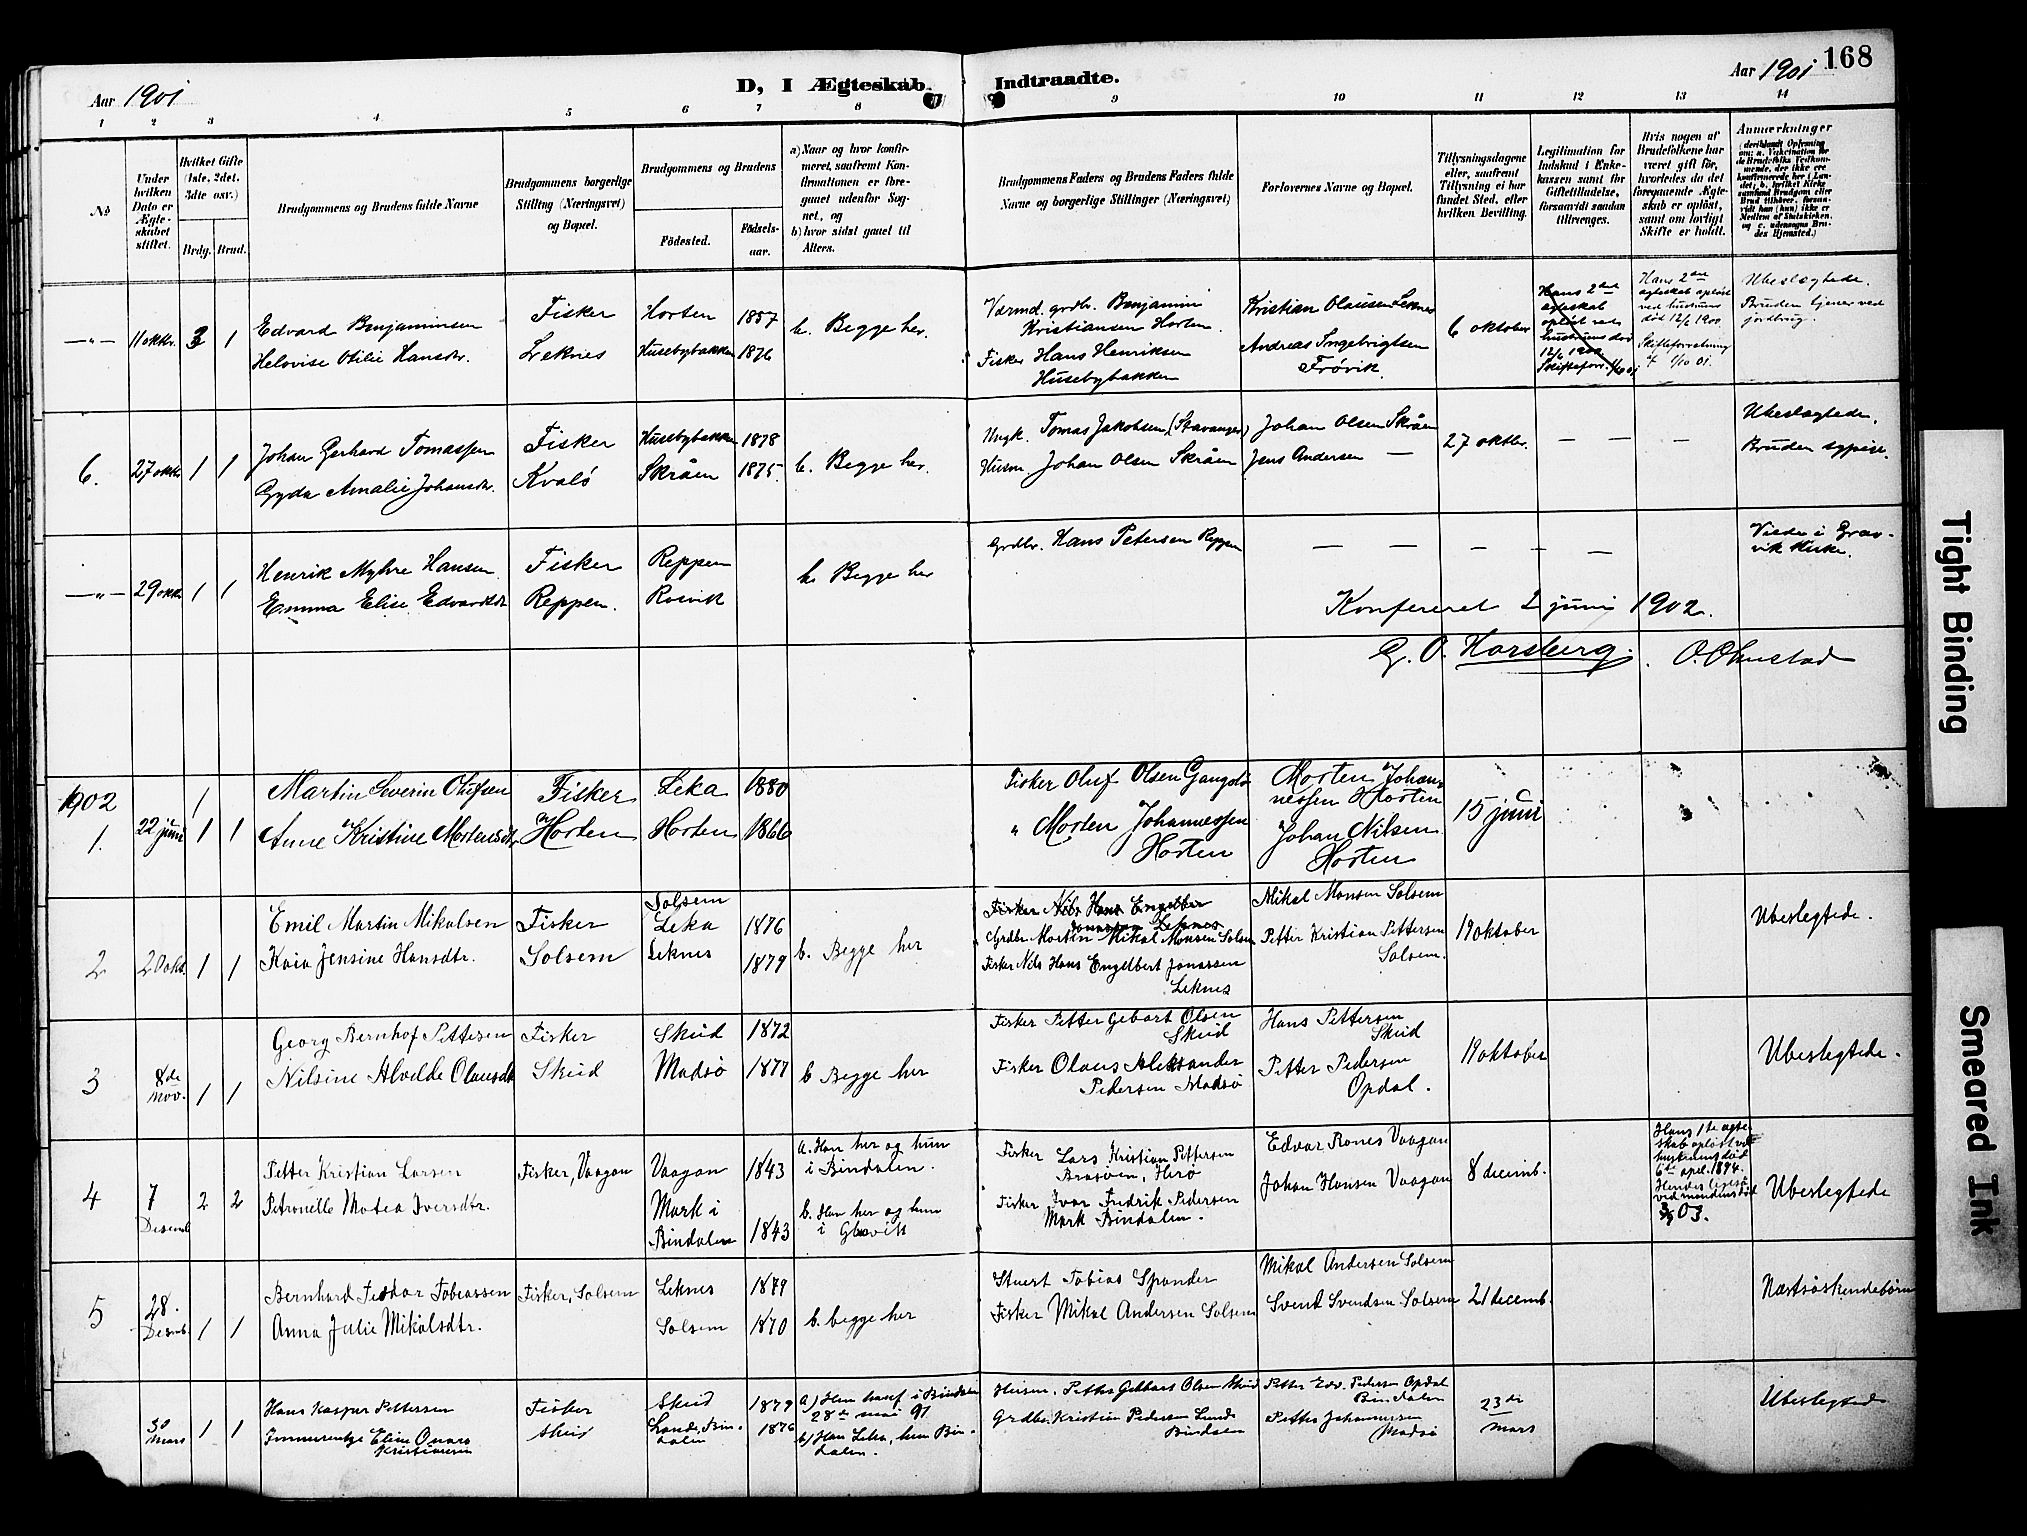 168
Aar 1901
D, I Ægteskab Indtraadte.
Aar 1901
1 2 3 4 5 6 7 8 9 10 11 12 13 14
No
Under hvilken Dato er Ægteskabet stiftet.
Hvilket Gifte (1ste, 2det, 3dte osv.)
Brdg. Brud.
Brudgommens og Brudens fulde Navne
Brudgommens borgerlige Stilling (Næringsvei) og Bopæl.
Brudgommens og Brudens
Fødested.
Fødselsaar.
a) Naar og hvor konfirmeret, saafremt Konfirmationen er foregaaet udenfor Sognet, og
b) hvor sidst gaaet til Alters.
Brudgommens Faders og Brudens Faders fulde Navne og borgerlige Stillinger (Næringsvei)
Forlovernes Navne og Bopæl.
Tillysningsdagene eller, saafremt Tillysning ei har fundet Sted, efter hvilken Bevilling.
Legitimation for Indskud i Enkekassen samt for Giftetilladelse, forsaavidt saadan tiltrænges.
Hvis nogen af Brudefolkene har været gift før, hvorledes da det foregaaende Ægteskab er opløst, samt om lovligt Skifte er holdt.
Anmærkninger
—"— 11 oktbr. 3 1
Edvard Benjaminsen
Helovise Otilie Hansdtr.
Fisker
Leknes
Horten 1857
Husebybakken 1876
b. Begge her.
Vdrmd. grdbr. Benjamin
Kristiansen Horten.
Fisker Hans Henriksen
Husebybakken
Kristian Olausen Leknes
Andreas Ingebrigtsen
Frøvik.
6 oktober
Hans 2det
ægteskab
opløst ved
hustruens død
12/6 1900
Skifteforr. 1/10 01
Hans 2det
ægteskab opløst
ved hustruens
død 12/6 1900
Skifteforretning
1/10 01.
Ubeslægtede.
Bruden tjener ved
jordbrug.
6. 27 oktbr 1 1
Johan Gerhard Tomassen
Gyda Amalie Johansdtr.
Fisker
Kvalø
Husebybakken 1878
Skråen 1875.
b. Begge her.
Ungk. Tomas Jakobsen, (Stavanger)
Husm. Johan Olsen Skråen
Johan Olsen Skråen
Jens Andersen —
27 oktbr.
— — —
Ubeslægtede.
Bruden sypike.
—"— 29 okt. 1 1
Henrik Myhre Hansen
Emma Elise Edvardsdtr
Fisker
Reppen.
Reppen
Rosvik
b. Begge her
Grdbr. Hans Petersen Reppen
— — — — —
Viede i Gravvik Kirke.
Konfereret 2 juni 1902.
G. O. Horsberg. O. Olmstad
1902
1. 22 juni 1 1 1
Martin Severin Olufsen
Anne Kristine Mortensdtr.
Fisker
Horten
Leka 1880
Horten 1866
Fisker Oluf Olsen Gangstø
" Morten Johannessen
Horten
Morten Johannessen Horten
Johan Nilsen
Horten
15 juni
2 20 okt. 1 1
Emil Martin Mikalsen
Kaia Jensine Hansdtr.
Fisker
Solsem
Solsem
Leka 1876
Leknes 1879
b. Begge her
Fisker Nils Hans Engelber
Jonassen Leknes
Grdbr Morten Mikal Monsen Solsem
Fisker Nils Hans Engelbert Jonassen
Leknes
Mikal Monsen Solsem
Petter Kristian Pettersen
Solsem.
19 oktober
Ubeslegtede.
3 8de Nov. 1 1
Georg Bernhof Pettersen
Nilsine Alvelde Olausdtr
Fisker
Skeid
Skeid 1872
Madsø 1877
b Begge her
Fisker Petter Gebart Olsen
Skeid
Fisker Olaus Aleksander
Pedersen Madsø
Hans Pettersen
Skeid
Petter Pedersen
Opdal.
19 oktober
Ubeslegtede.
4 7 Desemb 2 2
Petter Kristian Larsen
Petronelle Motea Iversdtr.
Fisker, Vaagan
Vaagan 1843
Mark i
Bindalen 1843
a. Han her og hun
i Bindalen.
b. Han her og hun
i Gravik
Fisker Lars Kristian Pettersen
Brasøen, Herø
Fisker Ivar Fredrik Pedersen
Mark Bindalen.
Edvar Rones Vaagan
Johan Hansen Vaagan
8 decemb.
Hans 1ste ægteskab opløst ved
hustruens død
6te april 1894.
Hendes
ved mandens død
03.
Ubeslegtede
5 28. Desemb. 1 1
Bernhard Teodor Tobiassen
Anna Julie Mikalsdtr.
Fisker, Solsem
Leknes 1879
Solsem 1870
b. begge her
Stuert Tobias Spander
Fisker Mikal Andersen Solsem
Mikal Andersen Solsem
Svend Svendsen Solsem
21 decemb.
Næstsøskendebørn
30 Mars 1 1
Hans Kaspar Pettersen
Eline
Kristiansen
Fisker
Skeid
Skeid 1879
Lande, Bindalen 1876
a) Hun konf. i Bindalen
28de mai 91
b) Han Leka, hun Bindalen.
Husm. Petter Gebhart Olsen Skeid
Grdbr. Kristian Pedersen Lande
Bindalen
Petter Edv. Pedersen Opdal
Bindalen
Petter Johannessen
Madsø
23de mars
Ubeslegtede
Tight Binding
Smeared Ink